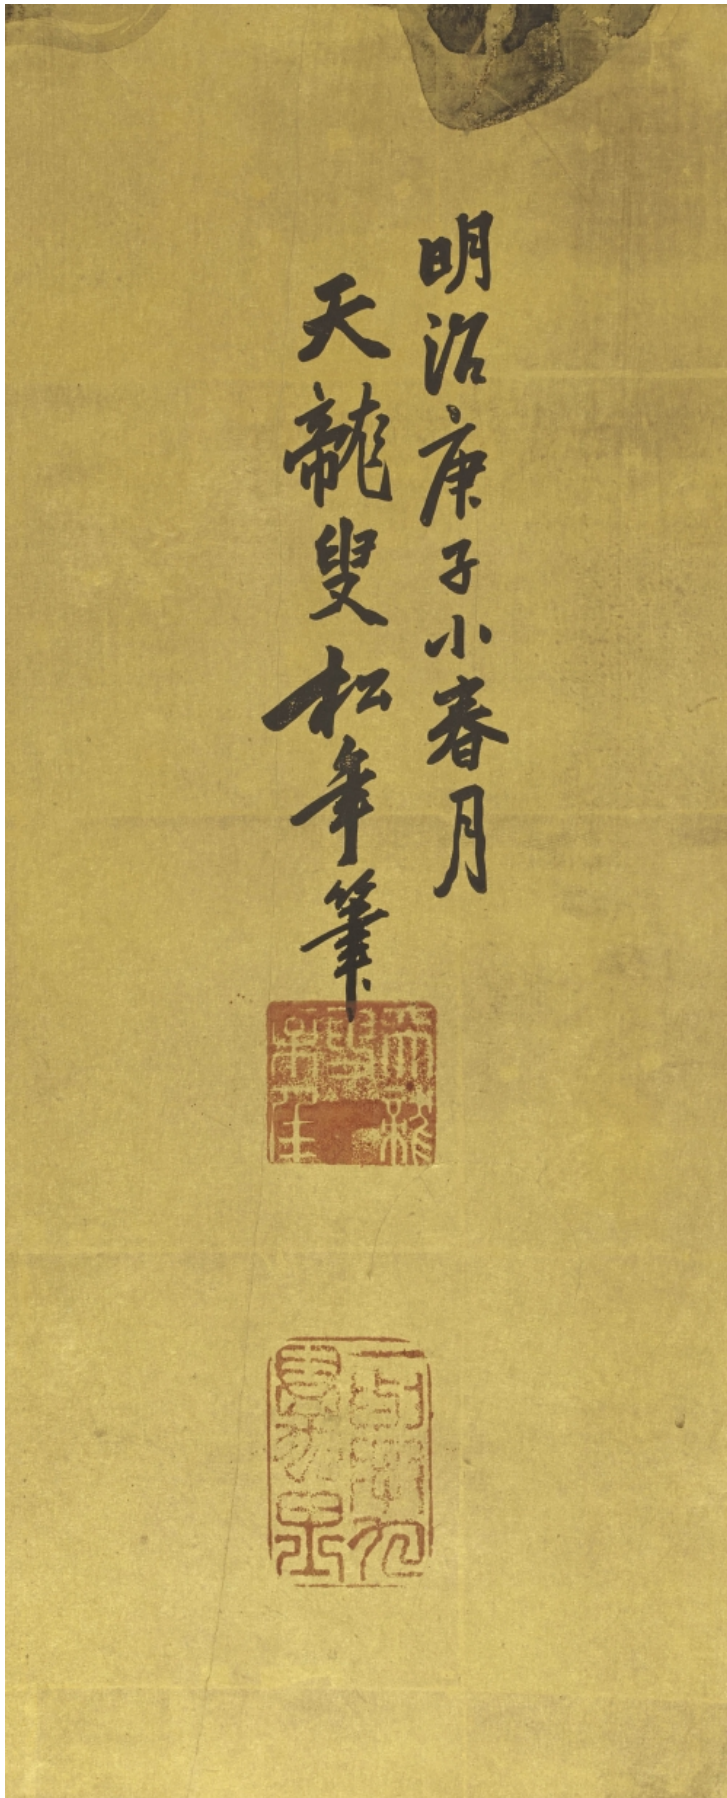 明治庚子小春月
天龍叟松年筆